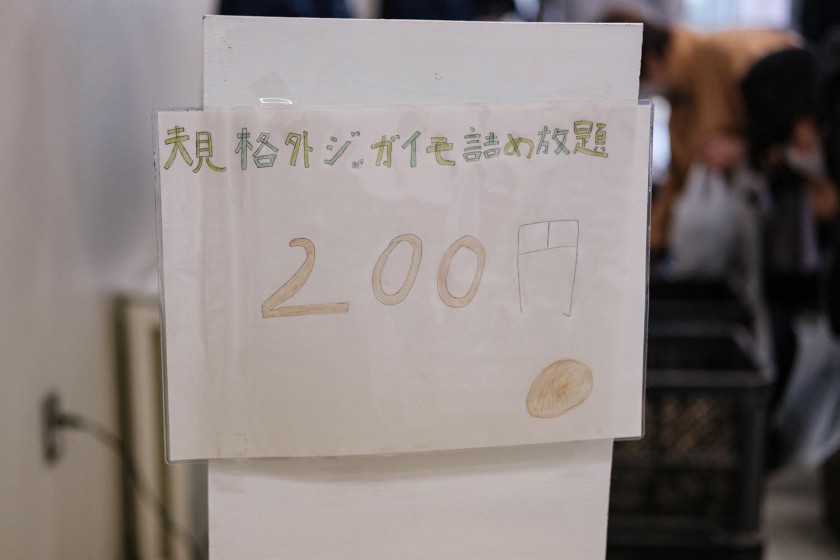 規格外ジャガイモ詰め放題
200円